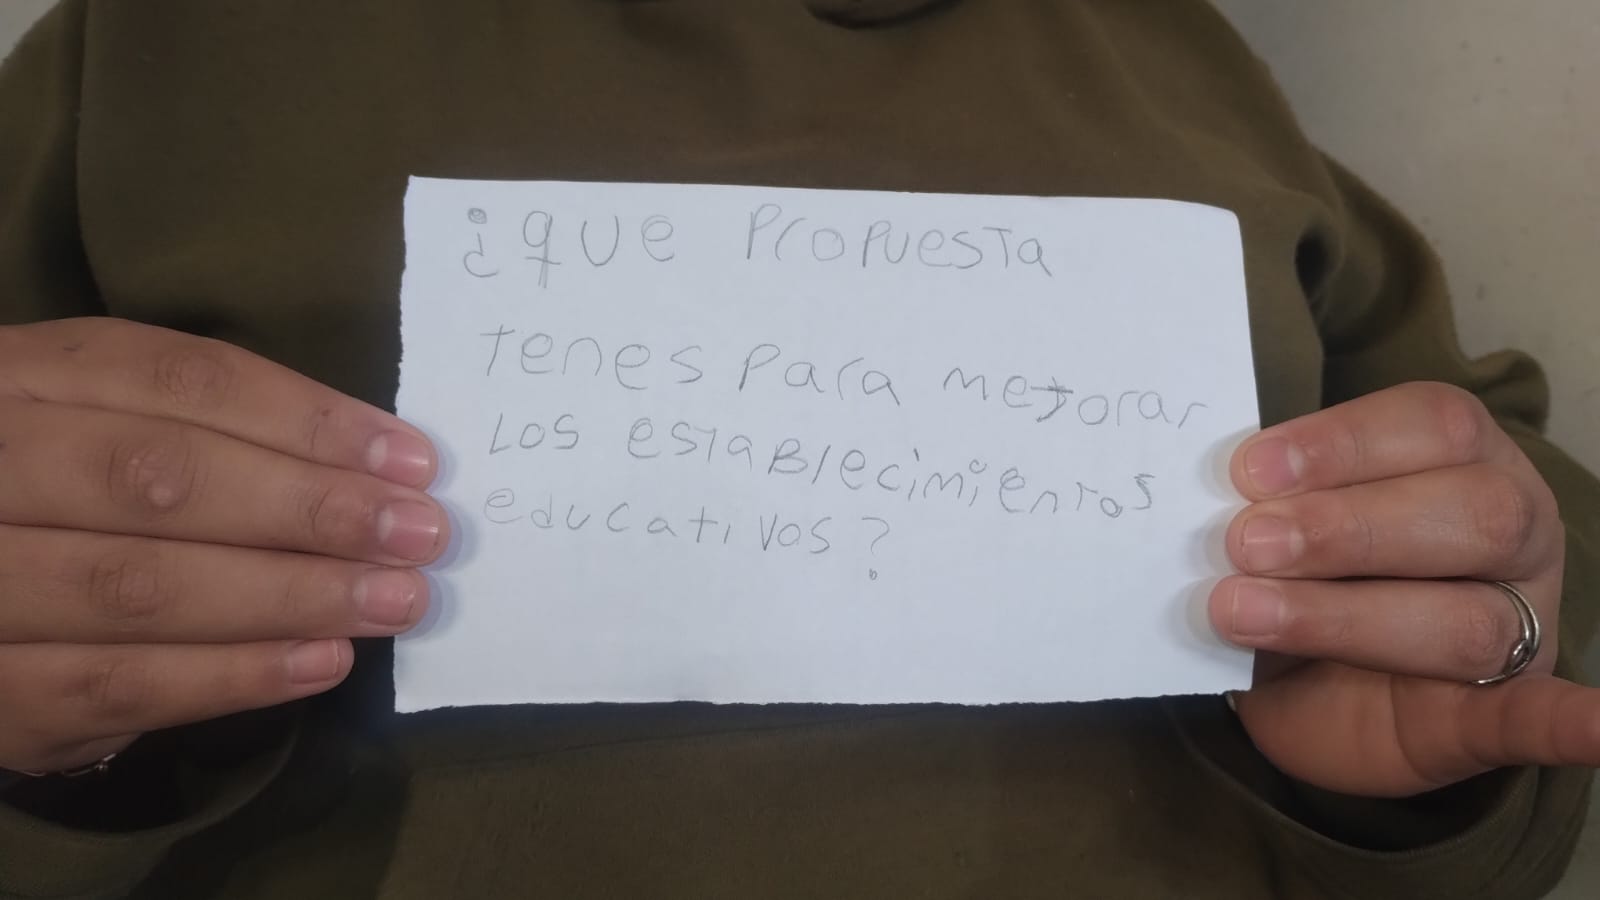 ¿que Propuesta
tenes para mejorar
Los estaBlecimientos
educativos?